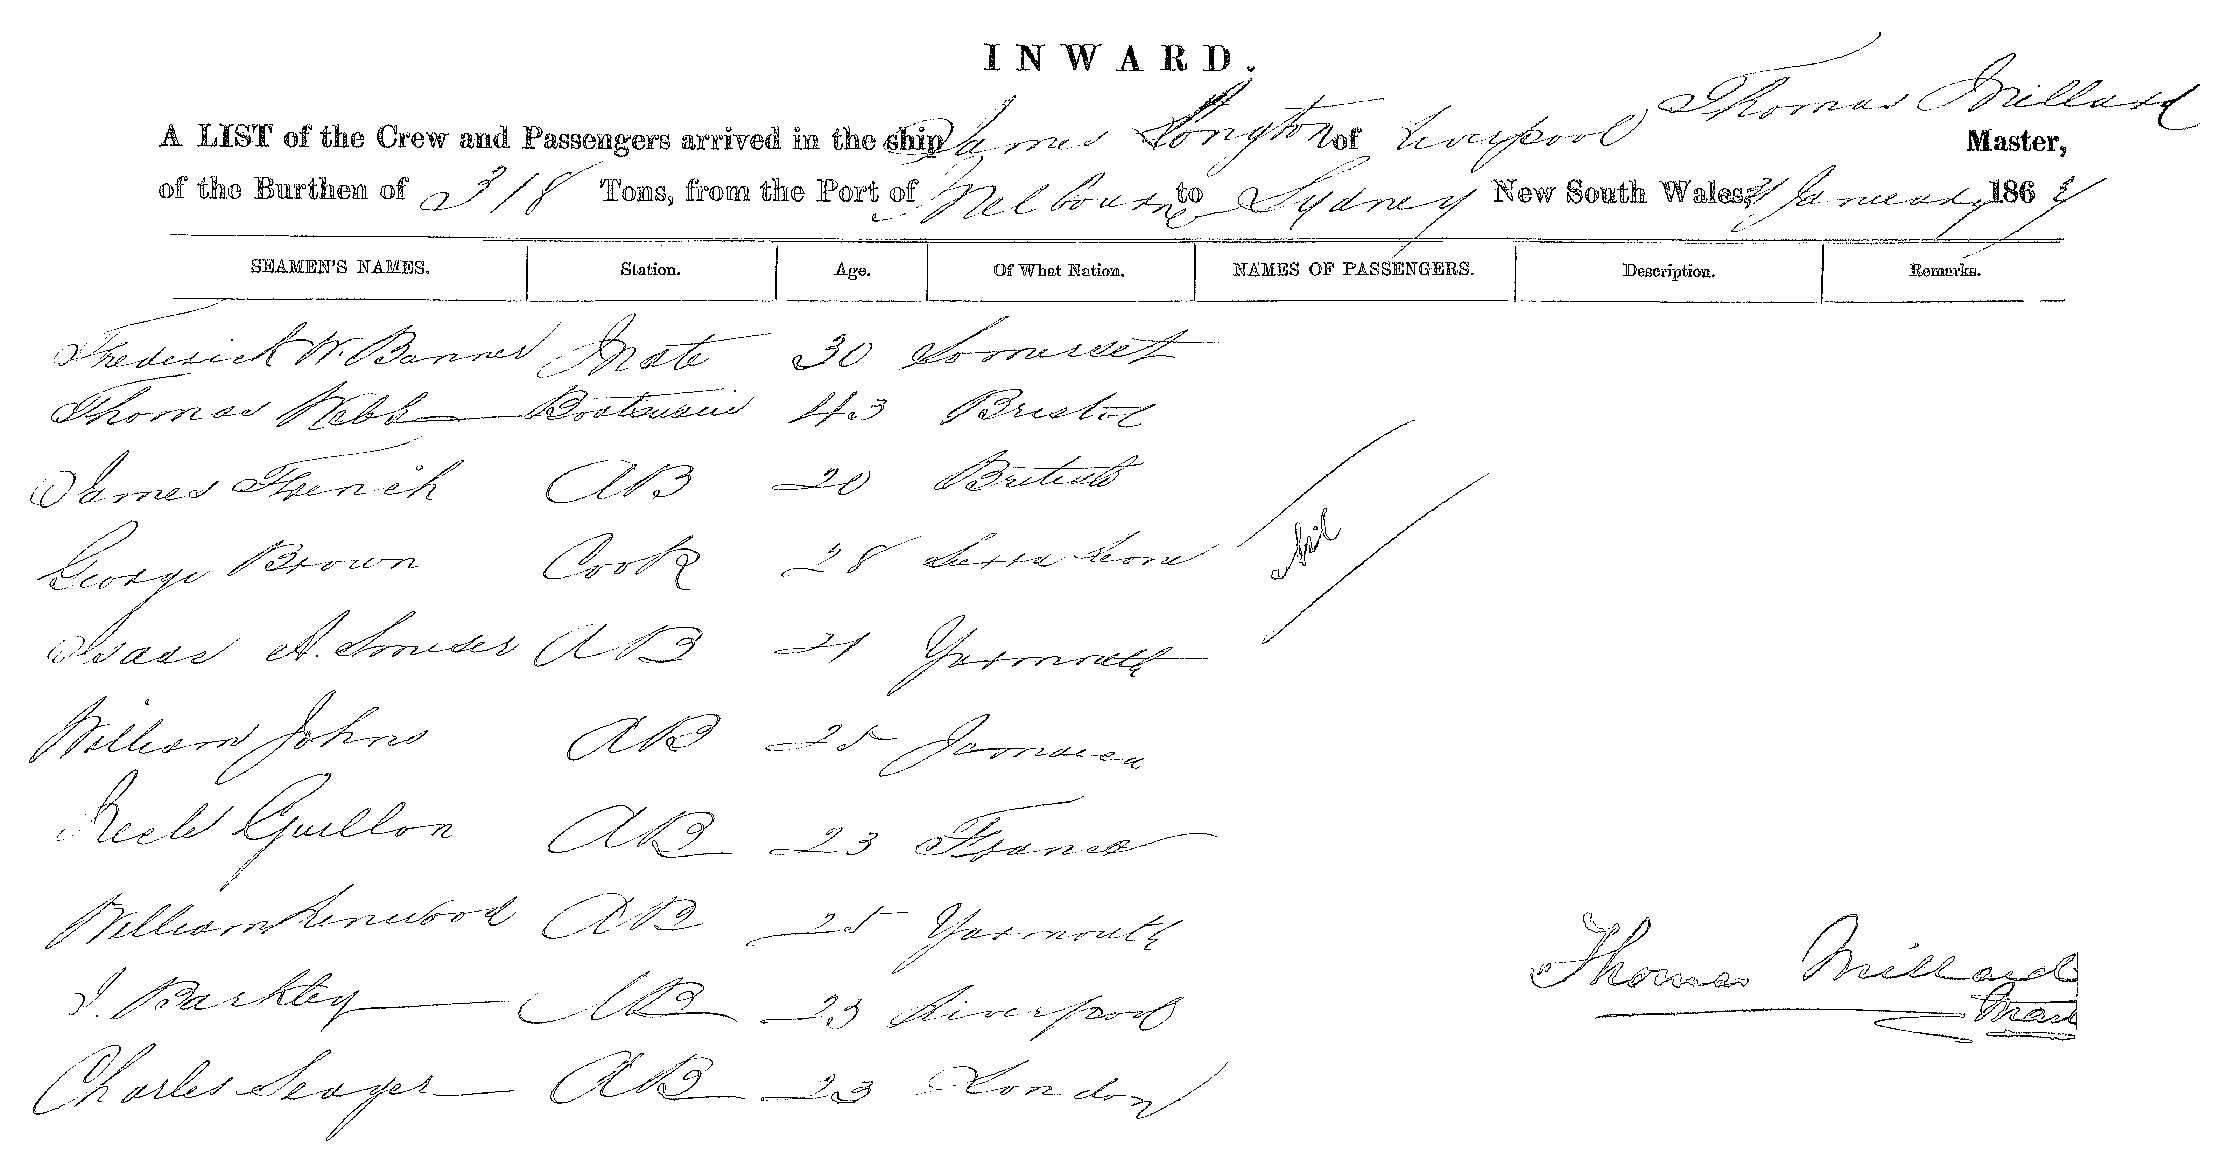 INWARD.
A LIST of the Crew and Passengers arrived in the ship James Longton of Liverpool Thomas Millard Master,
of the Burthen of 318 Tons, from the Port of Melbourne to Sydney New South Wales, January 186
SEAMEN'S NAMES. Station. Age. Of What Nation. NAMES OF PASSENGERS. Description. Remarks.
Frederick W. Banner Mate 30 Somerset
Thomas Webb Boatswain 43 Bristol
James French AB 20
George Brown Cook 28 Sierra Leone
Isaac A. AB 21 Yarmouth
William Johns AB 25 Jamaica
Guillon AB 23 France
William AB 25 Yarmouth
J. Barkley AB 23 Liverpool
Charles Seager AB 23 London
Nil
Thomas Millard